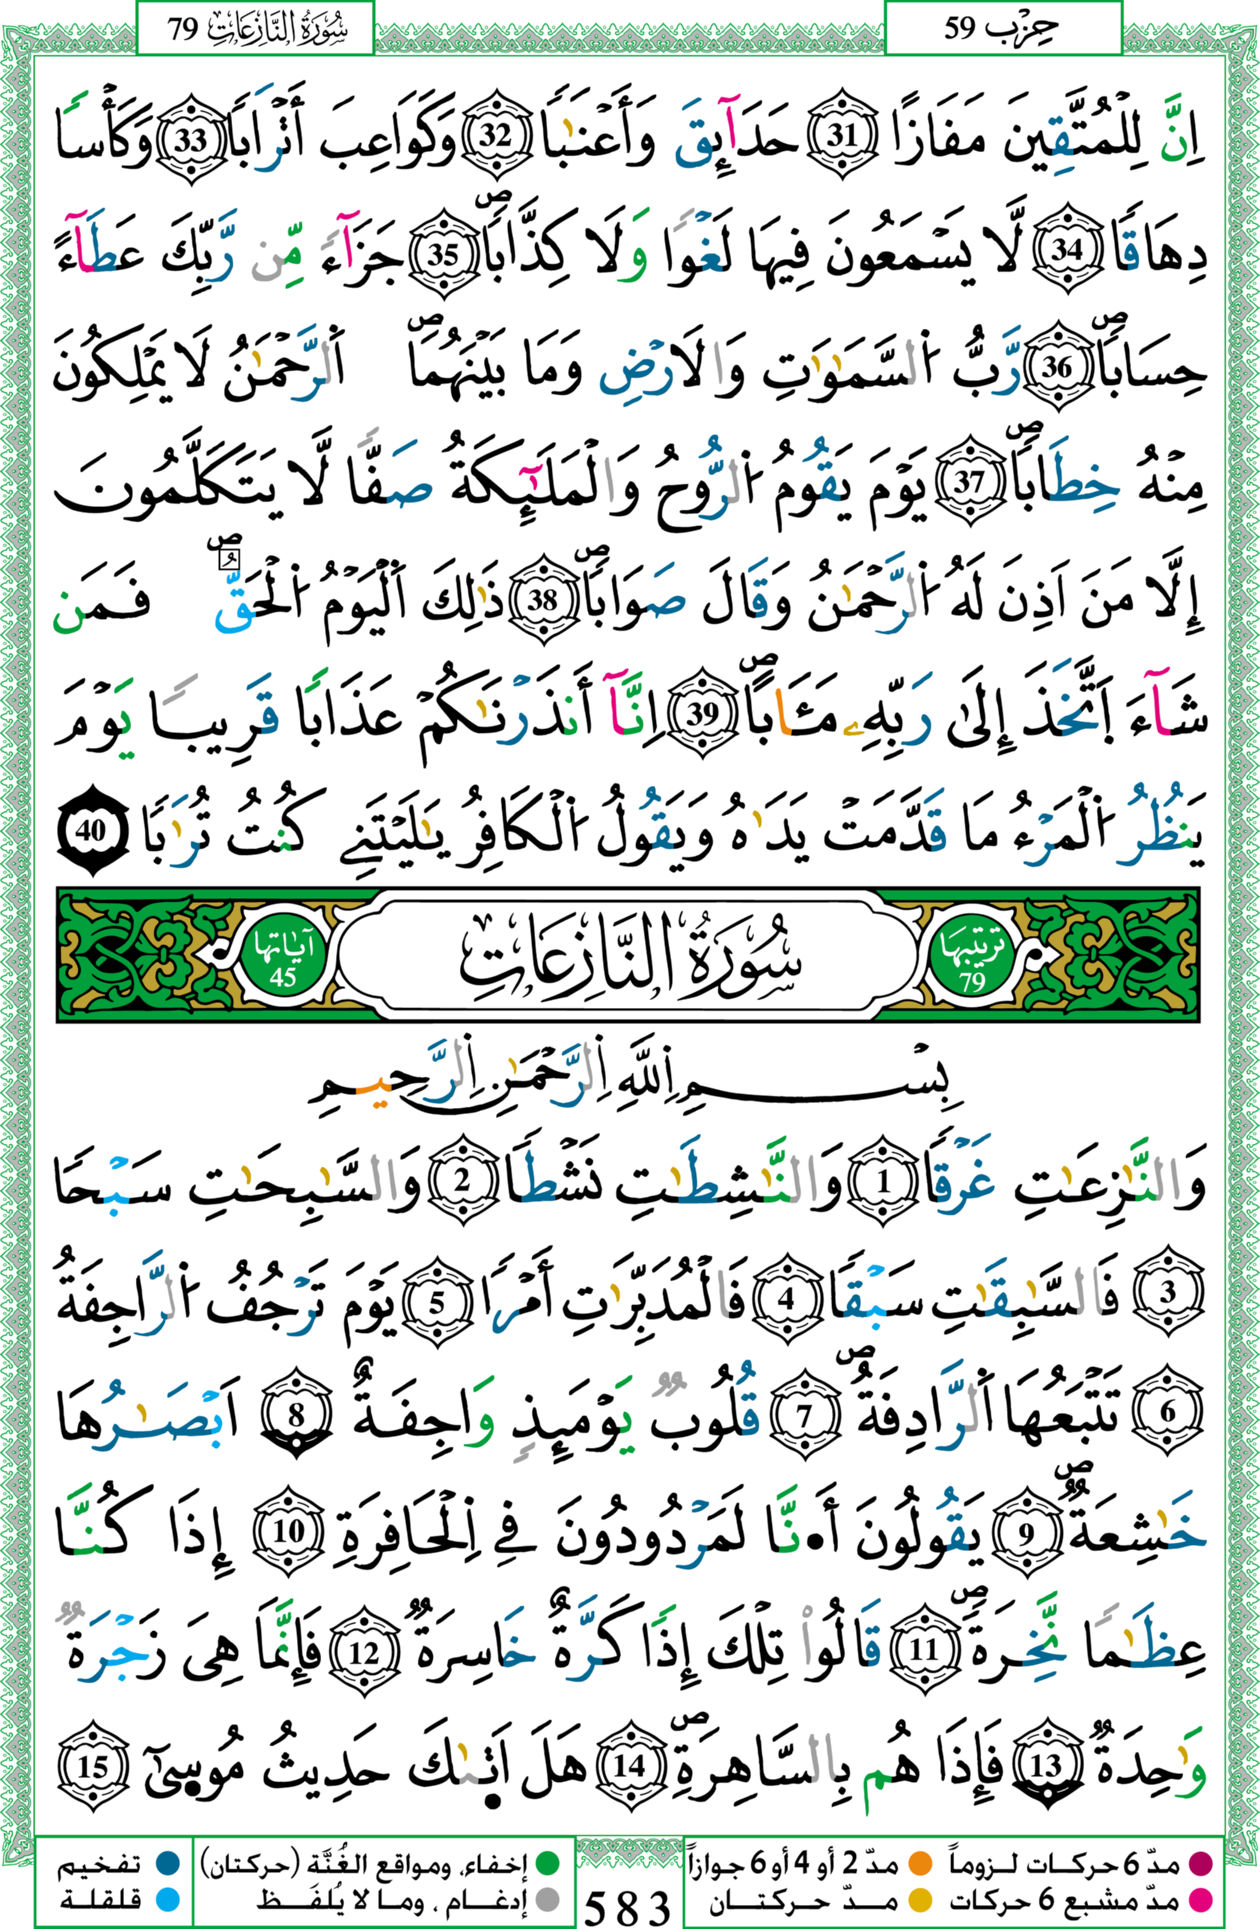 سُورَةُ النَّازِعَاتِ 79
حِزْب 59
اِنَّ لِلْمُتَّقِينَ مَفَازًا 31 حَدَآئِقَ وَأَعْنَٰبًا 32 وَكَوَاعِبَ أَتْرَابًا 33 وَكَأْسًا
دِهَاقًا 34 لَّا يَسْمَعُونَ فِيهَا لَغْوًا وَلَا كِذَّابًا ص 35 جَزَآءً مِّن رَّبِّكَ عَطَآءً
حِسَابًا ص 36 رَّبُّ اُ۬لسَّمَٰوَٰتِ وَالَارْضِ وَمَا بَيْنَهُمَا ص اَ۬لرَّحْمَٰنُ لَا يَمْلِكُونَ
مِنْهُ خِطَابًا ص 37 يَوْمَ يَقُومُ اُ۬لرُّوحُ وَالْمَلَٰٓئِكَةُ صَفًّا لَّا يَتَكَلَّمُونَ
إِلَّا مَنَ اَذِنَ لَهُ اُ۬لرَّحْمَٰنُ وَقَالَ صَوَابًا ص 38 ذَٰلِكَ اَ۬لْيَوْمُ اُ۬لْحَقُّ ص فَمَن
شَآءَ اَ۪تَّخَذَ إِلَىٰ رَبِّهِۦ مَـَٔابًا ص 39 اِنَّآ أَنذَرْنَٰكُمْ عَذَابًا قَرِيبًا يَوْمَ
يَنظُرُ اُ۬لْمَرْءُ مَا قَدَّمَتْ يَدَٰهُ وَيَقُولُ اُ۬لْكَافِرُ يَٰلَيْتَنِے كُنتُ تُرَٰبًا 40
تَرتيبها 79
سُورَةُ النَّازِعَاتِ
آيَاتها 45
بِسْمِ اِ۬للَّهِ اِ۬لرَّحْمَٰنِ اِ۬لرَّحِيمِ
وَالنَّٰزِعَٰتِ غَرْقًا 1 وَالنَّٰشِطَٰتِ نَشْطًا 2 وَالسَّٰبِحَٰتِ سَبْحًا
3 فَالسَّٰبِقَٰتِ سَبْقًا 4 فَالْمُدَبِّرَٰتِ أَمْرًا 5 يَوْمَ تَرْجُفُ اُ۬لرَّاجِفَةُ
6 تَتْبَعُهَا اَ۬لرَّادِفَةُ ص 7 قُلُوبٌ يَوْمَئِذٍ وَاجِفَةٌ 8 اَبْصَٰرُهَا
خَٰشِعَةٌ ص 9 يَقُولُونَ أَ•نَّا لَمَرْدُودُونَ فِے اِ۬لْحَافِرَةِ 10 إِذَا كُنَّا
عِظَٰمًا نَّخِرَةً ص 11 قَالُوا۟ تِلْكَ إِذًا كَرَّةٌ خَاسِرَةٌ 12 فَإِنَّمَا هِىَ زَجْرَةٌ
وَٰحِدَةٌ 13 فَإِذَا هُم بِالسَّاهِرَةِ ص 14 هَلَ اَتٜىٰكَ حَدِيثُ مُوسٜىٰٓ 15
مدّ 6 حركات لـزوماً مدّ 2 أو 4 أو 6 جوازاً
مدّ مشبع 6 حركات مــدّ حـركتــان
583
إخفاء، ومواقع الغُنَّة (حركتان) تفخيم
إدغــام ، ومـا لا يُلفَــظ قلقلة